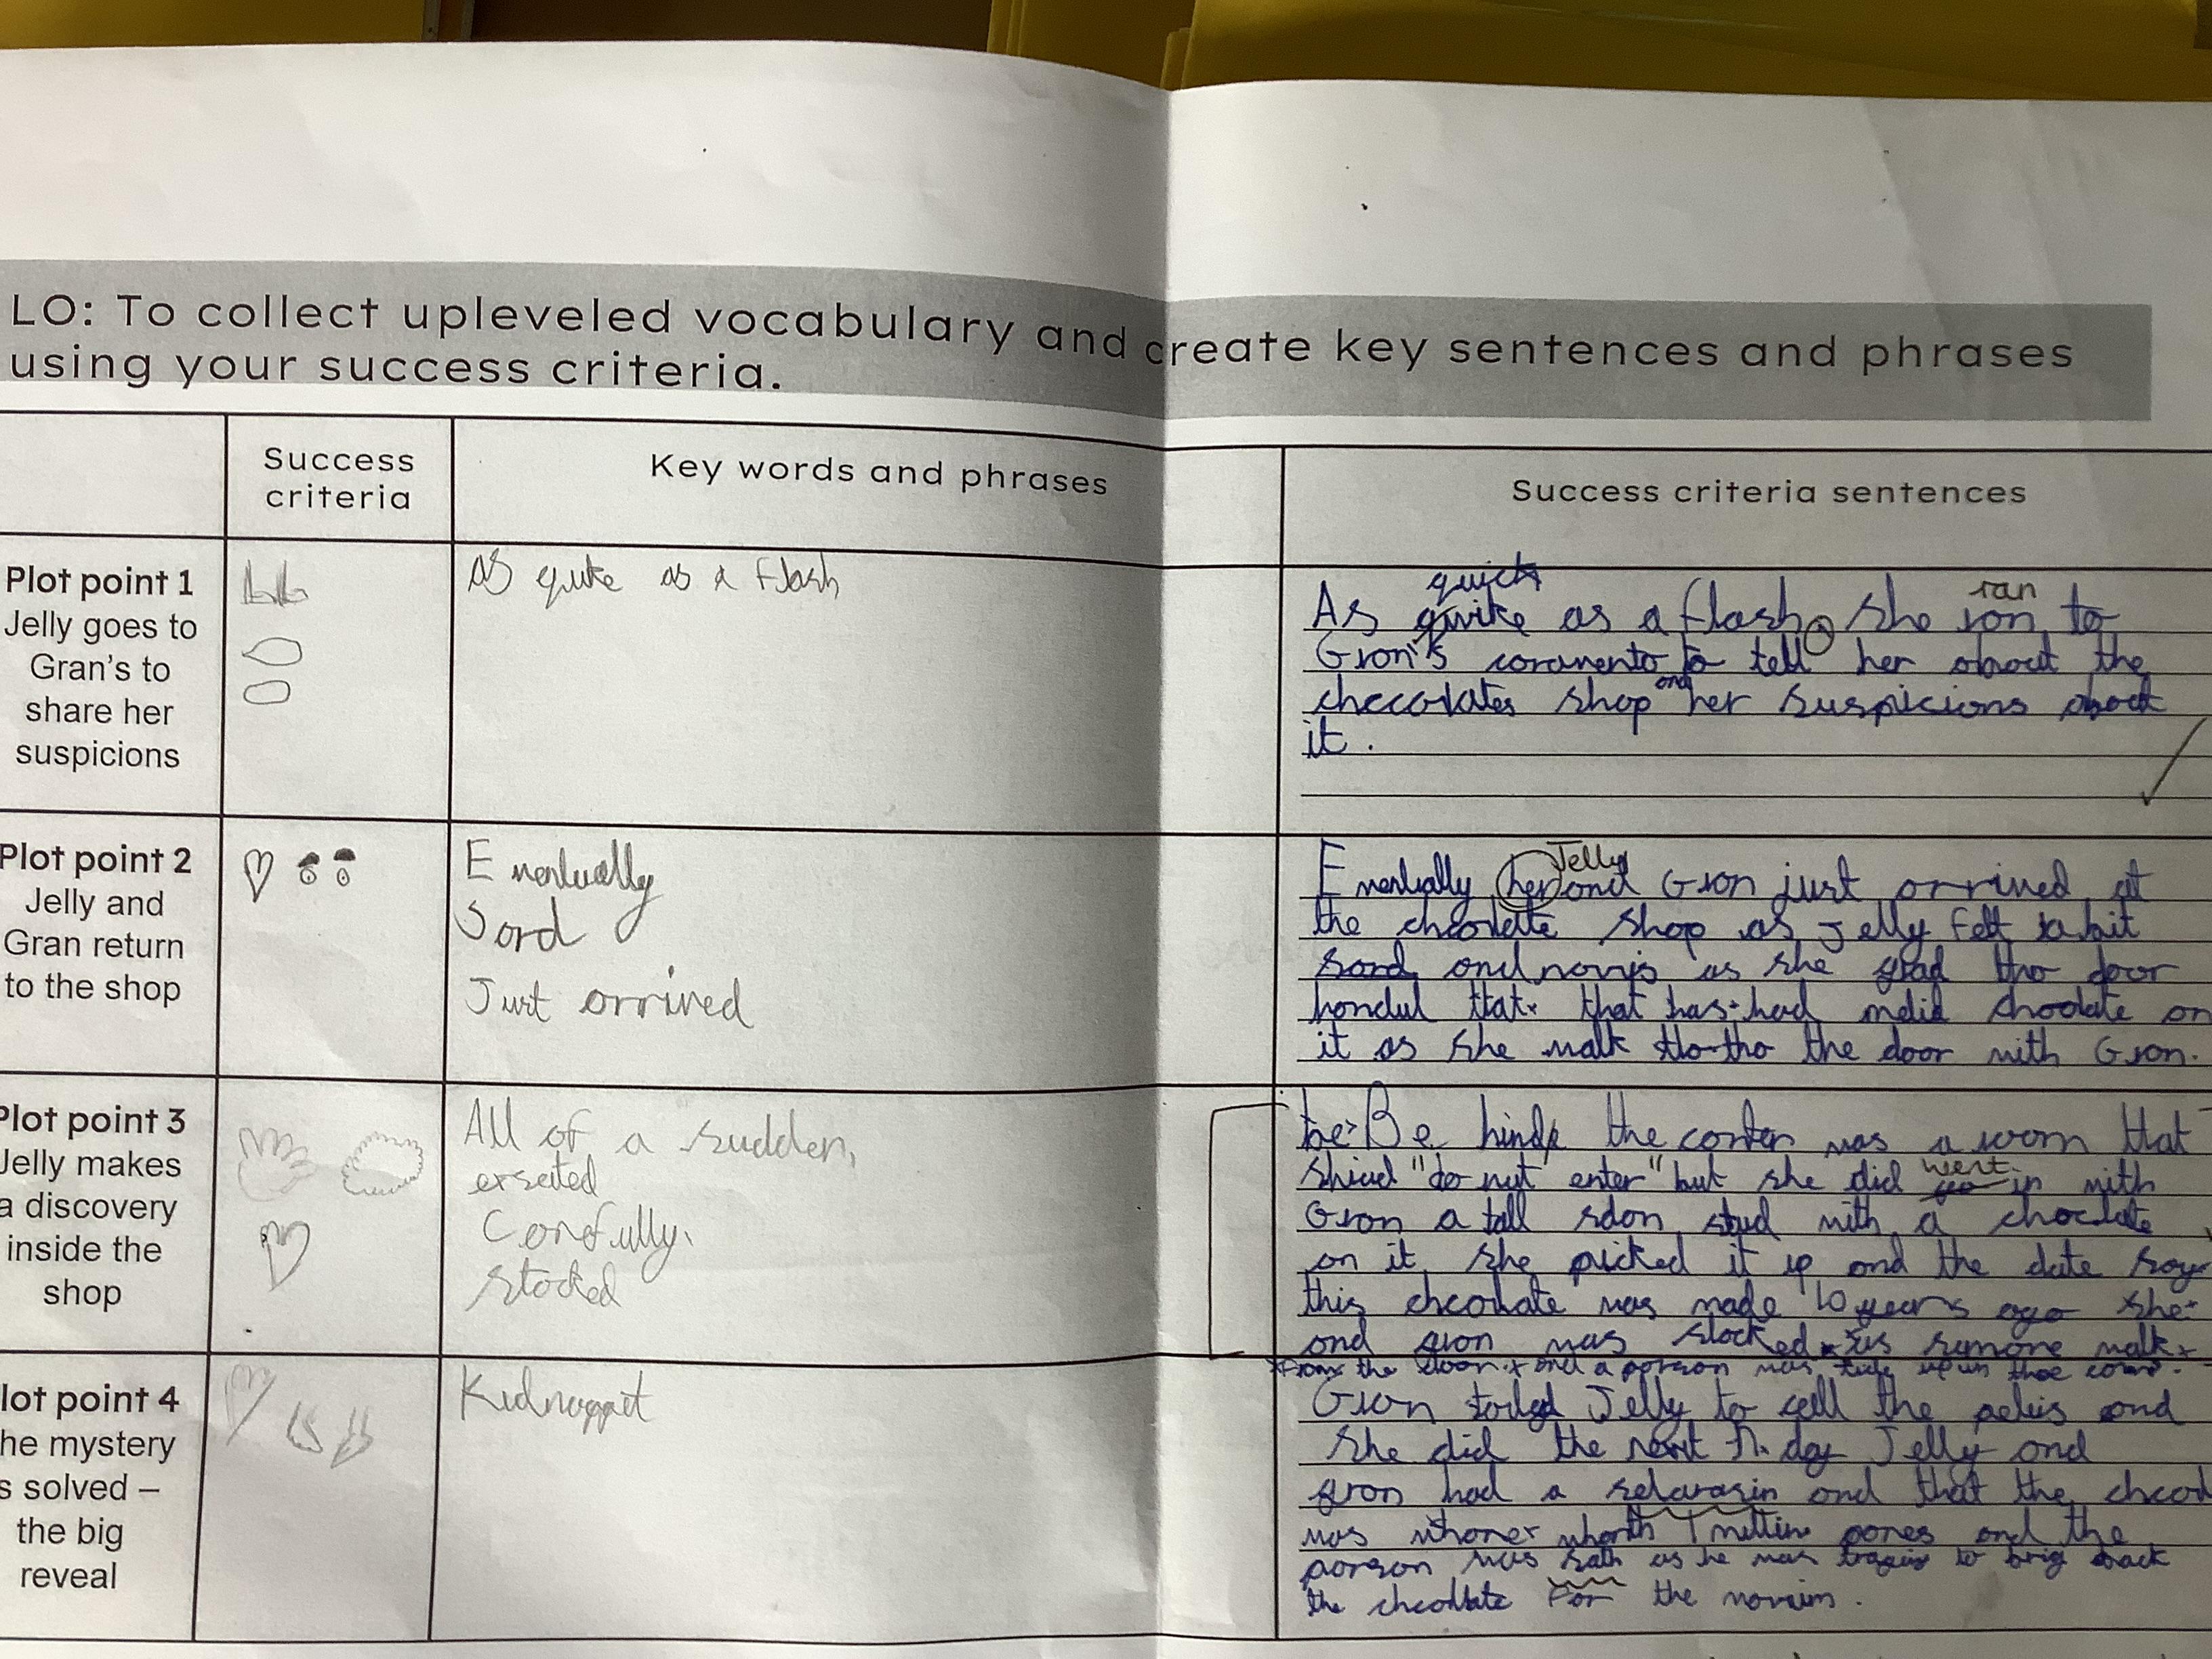 LO: To collect upleveled vocabulary and create key sentences and phrases
using your success criteria.
Success
criteria
Key words and phrases
Success criteria sentences
Plot point 1
Jelly goes to
Gran's to
share her
suspicions
As quike as a flash
quick
ran
As quike as a flash, she ron to
Gron's to tell her about the
checolates shop and her suspicions about
it.
Plot point 2
Jelly and
Gran return
to the shop
Eventually
Sord
Just arrived
Jelly
Eventually her and Gron just arrived at
the chcolate shop as Jelly felt a bit
and as she the door
hondul that has had chocolate on
it as she walk the door with Gron.
Plot point 3
Jelly makes
a discovery
inside the
shop
All of a sudden,
exseted
Carefully
stocked
Be hinde the conter was a worn that
went
"do not enter" but she did in with
Gron a tall stud with a choclate
on it she picked it up and the date say
this chcolate was made 10 years ago she
and gron was slocked as sumone walk
from the door and a porson was
lot point 4
he mystery
s solved –
the big
reveal
Kidnappet
Gron toled Jelly to cell the and
she did the next day Jelly and
gron had a and that the chcod
was whorth 1 millin pones and the
porson was as he was to brig back
the chcolate for the